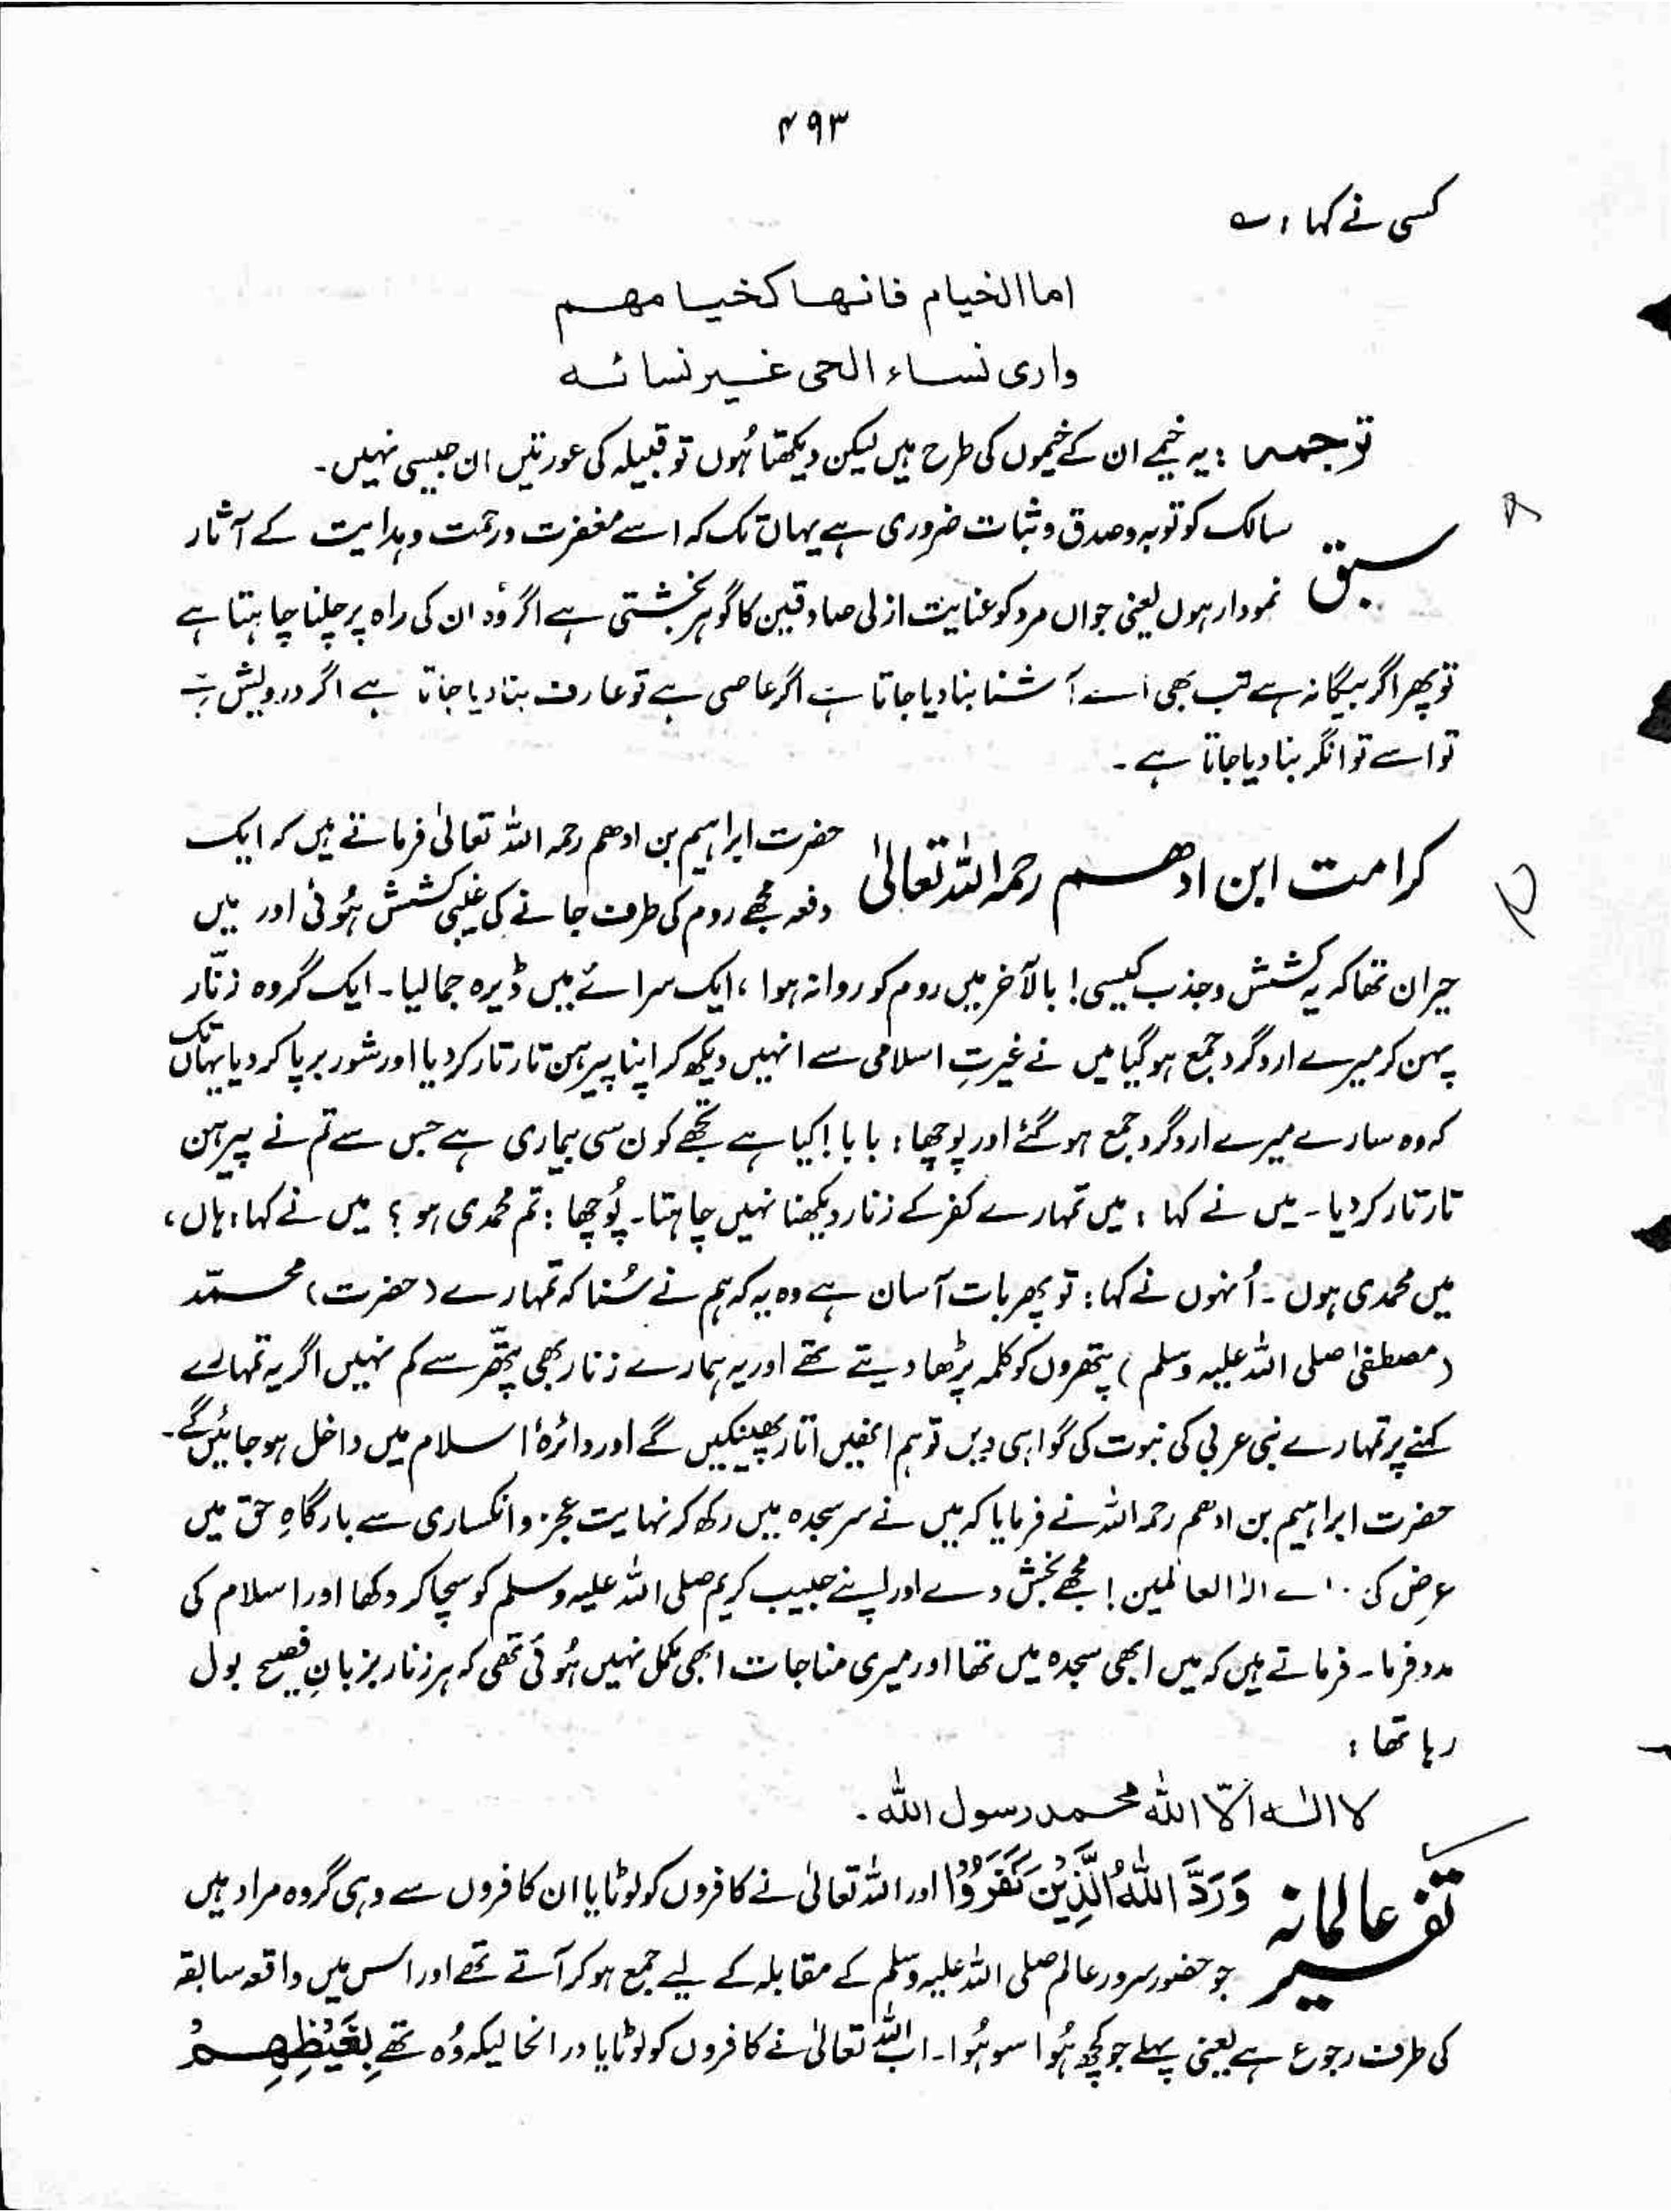 ۴۹۳
کسی نے کہا : ؎
اما الخیام فانہا کخیامہم
واری نساء الحی غیر نسائہ
ترجمہ : یہ خیمے ان کے خیموں کی طرح ہیں لیکن دیکھتا ہُوں تو قبیلہ کی عورتیں ان جیسی نہیں ۔
سبق سالک کو توبہ و صدق و ثبات ضروری ہے یہاں تک کہ اسے مغفرت و رحمت و ہدایت کے آثار
نمودار ہوں یعنی جواں مرد کو عنایت ازلی صادقین کا گوہر بخشتی ہے اگر وُہ ان کی راہ پر چلنا چاہتا ہے
تو پھر اگر بیگانہ ہے تب بھی اسے آشنا بنا دیا جاتا ہے اگر عاصی ہے تو عارف بنا دیا جاتا ہے اگر درویش ہے
تو اسے توانگر بنا دیا جاتا ہے ۔
کرامت ابن ادھم رحمہ اللہ تعالیٰ حضرت ابراہیم بن ادھم رحمہ اللہ تعالیٰ فرماتے ہیں کہ ایک
دفعہ مجھے روم کی طرف جانے کی غیبی کشش ہُوئی اور میں
حیران تھا کہ یہ کشش و جذب کیسی! بالآخر میں روم کو روانہ ہوا ، ایک سرائے میں ڈیرہ جما لیا ۔ ایک گروہ زنّار
پہن کر میرے اردگرد جمع ہو گیا میں نے غیرتِ اسلامی سے انہیں دیکھ کر اپنا پیرہن تار تار کر دیا اور شور برپا کر دیا یہاں تک
کہ وہ سارے میرے اردگرد جمع ہو گئے اور پوچھا : بابا ! کیا ہے تجھے کون سی بیماری ہے جس سے تم نے پیرہن
تار تار کر دیا ۔ میں نے کہا : میں تمہارے کفر کے زنار دیکھنا نہیں چاہتا ۔ پُوچھا : تم محمدی ہو ؟ میں نے کہا : ہاں ،
میں محمدی ہوں ۔ اُنہوں نے کہا : تو پھر بات آسان ہے وہ یہ کہ ہم نے سُنا کہ تمہارے (حضرت) محمّد
(مصطفیٰ صلی اللہ علیہ وسلم) پتھروں کو کلمہ پڑھا دیتے تھے اور یہ ہمارے زنار بھی پتّھر سے کم نہیں اگر یہ تمہارے
کہنے پر تمہارے نبی عربی کی نبوت کی گواہی دیں تو ہم انھیں اتار پھینکیں گے اور دائرۂ اسلام میں داخل ہو جائیں گے ۔
حضرت ابراہیم بن ادھم رحمہ اللہ نے فرمایا کہ میں نے سر سجدہ میں رکھ کر نہایت عجز و انکساری سے بارگاہِ حق میں
عرض کی : اے الٰہ العالمین ! مجھے بخش دے اور اپنے حبیب کریم صلی اللہ علیہ وسلم کو سچا کر دکھا اور اسلام کی
مدد فرما ۔ فرماتے ہیں کہ میں ابھی سجدہ میں تھا اور میری مناجات ابھی مکمل نہیں ہُوئی تھی کہ ہر زنار بزبانِ فصیح بول
رہا تھا :
لا الٰہ الّا اللہ محمد رسول اللہ ۔
تفسیر عالمانہ وَرَدَّ اللّٰهُ الَّذِیْنَ كَفَرُوْا اور اللہ تعالیٰ نے کافروں کو لوٹایا ان کافروں سے وہی گروہ مراد ہیں
جو حضور سرور عالم صلی اللہ علیہ وسلم کے مقابلہ کے لیے جمع ہو کر آتے تھے اور اس میں واقعہ سابقہ
کی طرف رجوع ہے یعنی پہلے جو کچھ ہُوا سو ہُوا ۔ اب اللہ تعالیٰ نے کافروں کو لوٹایا در انحالیکہ وُہ تھے بِغَیْظِهِمْ